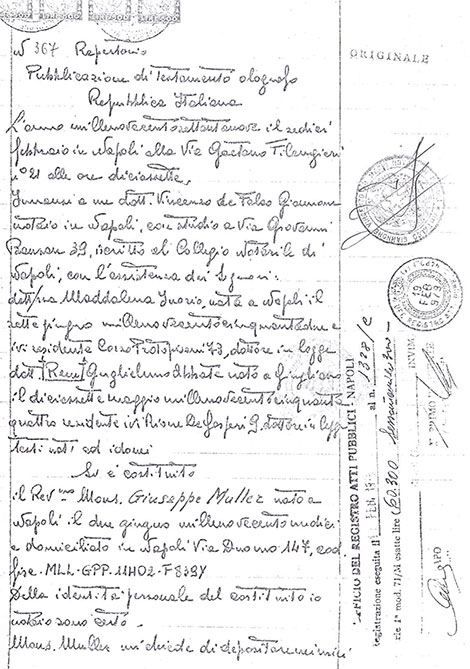 N° 367 Repertorio
Pubblicazione di testamento olografo
Repubblica Italiana
L'anno millenovecentosettantanove il sedici
febbraio in Napoli alla Via Gaetano Filangieri
n° 21 alle ore diciassette.
Innanzi a me dott. Vincenzo de Falco Giannone
notaio in Napoli, con studio a Via Giovanni
Bausan 39, iscritto al Collegio Notarile di
Napoli, con l'assistenza dei Signori:
dott/ssa Maddalena Iuorio, nata a Napoli il
sette giugno millenovecentocinquantadue e
ivi residente Corso Protopisani 73, dottore in legge
dott. Guglielmo Abbate nato a Giugliano
il diciassette maggio millenovecentocinquanta
quattro residente ivi Rione De Gasperi G. dottore in legge
testi noti ed idonei
Si è costituito
il Rev.mo Mons. Giuseppe Muller nato a
Napoli il due giugno millenovecentoundici
e domiciliato in Napoli Via Duomo 147, cod.
fisc. MLL-GPP-11H02-F839Y
Della identità personale del costituito io
notaio sono certo.
Mons. Muller mi chiede di depositare nei miei
ORIGINALE
19 FEB 1979
UFFICIO DEL REGISTRO ATTI PUBBLICI NAPOLI
Registrazione eseguita il
FEB. 19
al n. 1328/C
rie 1ª mod. 71/M esatte lire 60.300